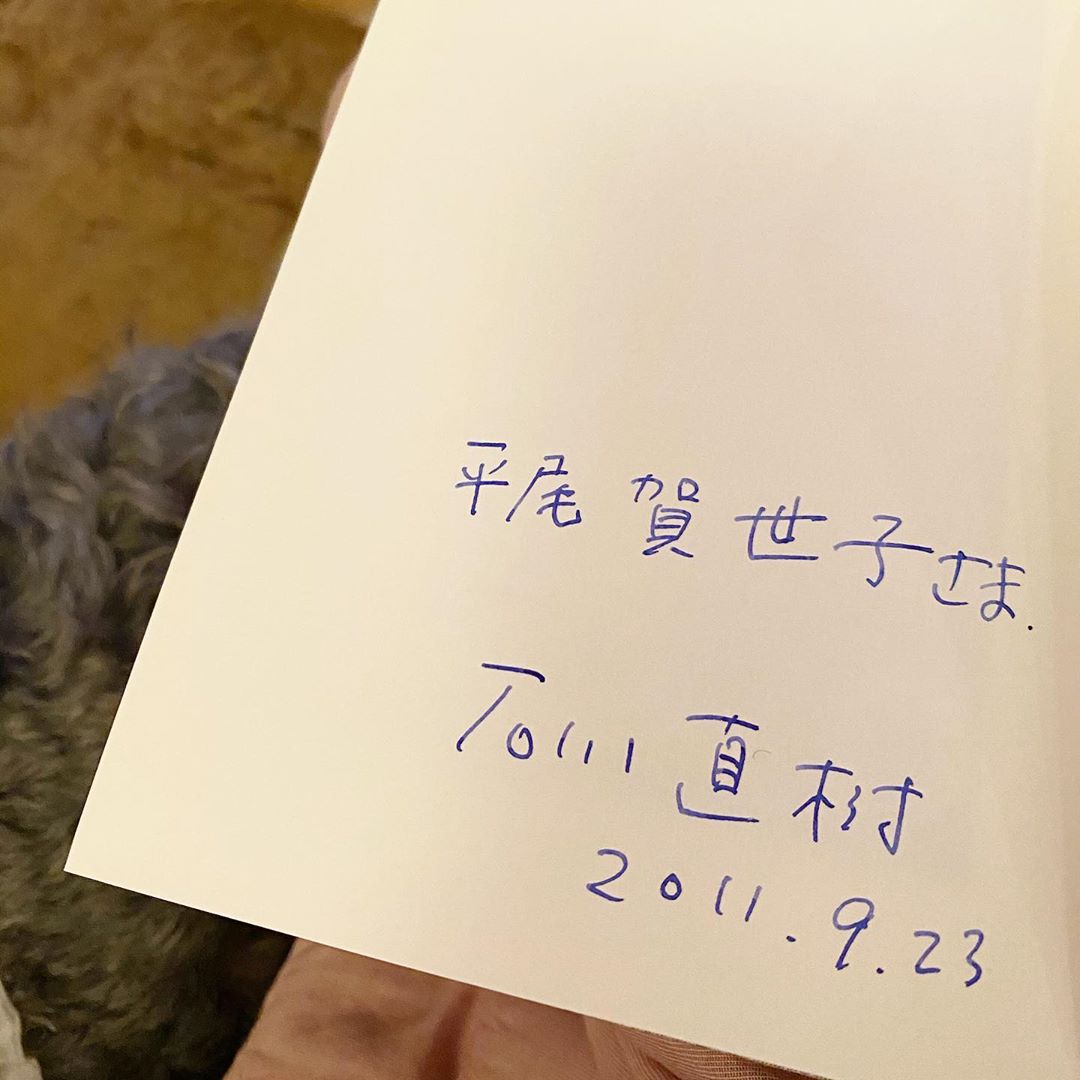 平尾 賀世子さま.
石川 直樹
2011.9.23